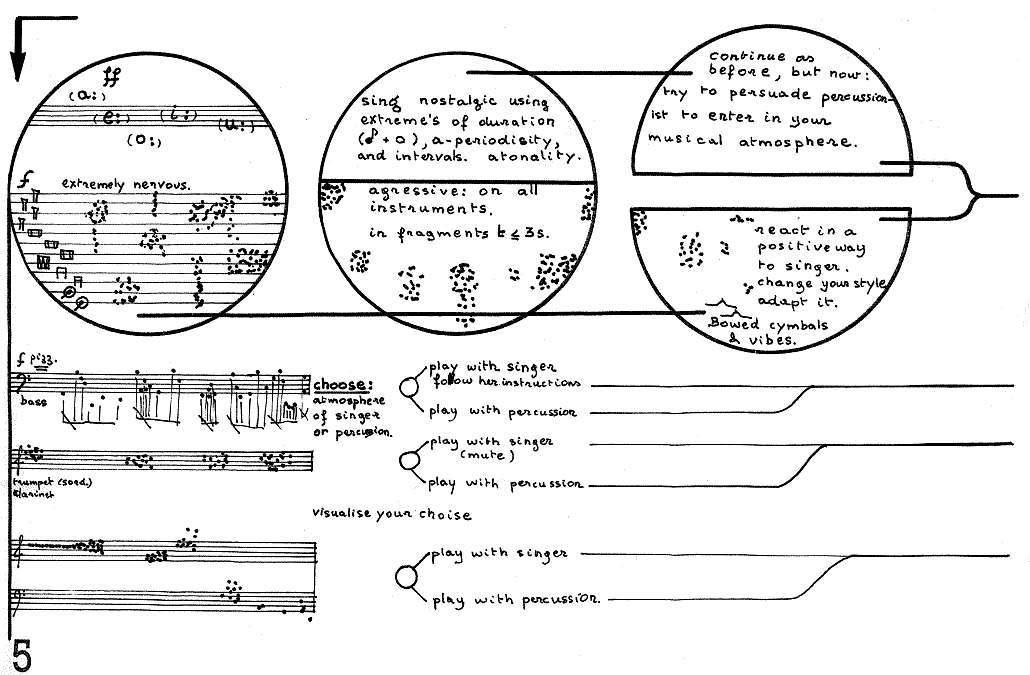 ff
(a:)
(e:)
(i:)
(u:)
(o:)
f
extremely nervous.
sing nostalgic using
extreme's of duration
(♪ + o), a-periodisity,
and intervals. atonality.
agressive: on all
instruments.
in fragments t ≤ 3s.
continue as
before, but now:
try to persuade percussion-
ist to enter in your
musical atmosphere.
react in a
positive way
to singer.
change your style
adapt it.
Bowed cymbals
& vibes.
f pizz.
bass
choose:
atmosphere
of singer
or percussion.
play with singer
follow her instructions
play with percussion
trumpet (sord.)
clarinet
play with singer
(mute)
play with percussion
visualise your choise
play with singer
play with percussion.
5